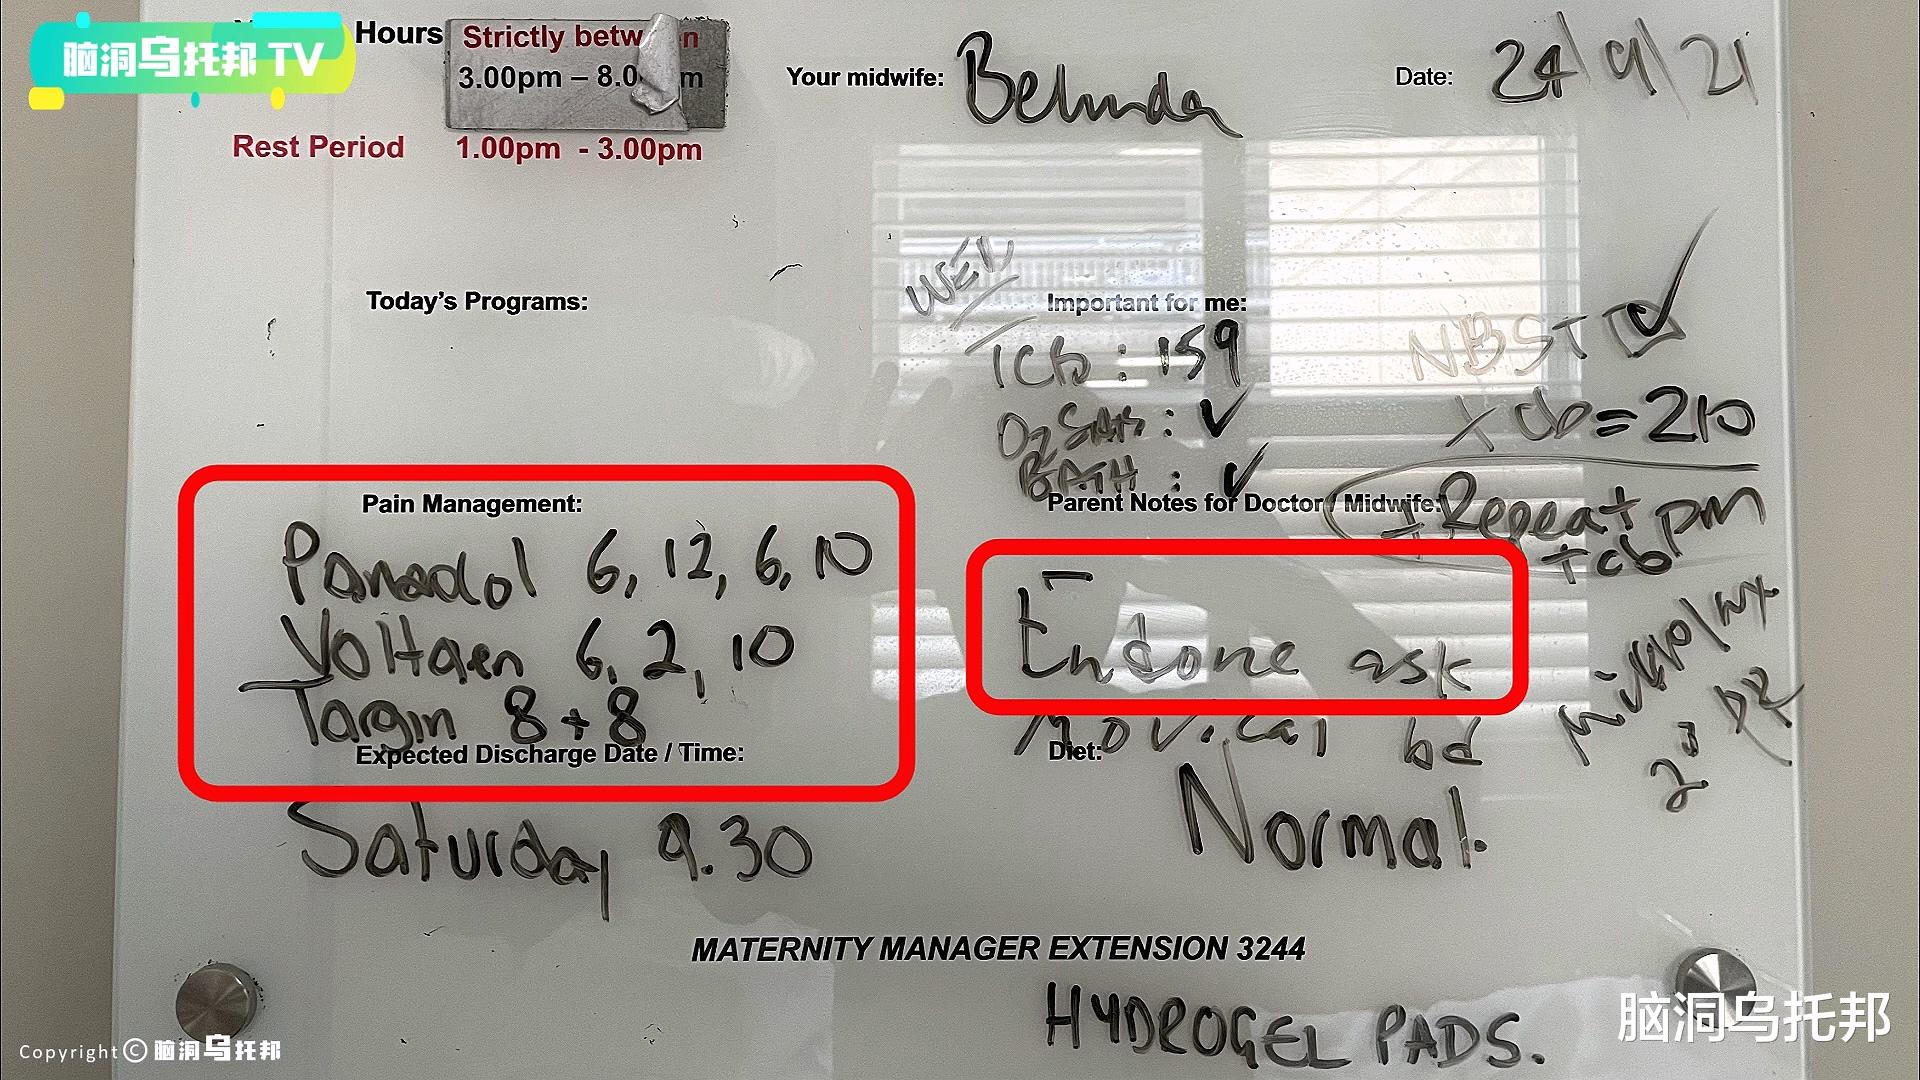 脑洞乌托邦 TV
Hours
Strictly betw n
3.00pm – 8.0 m
Rest Period 1.00pm - 3.00pm
Your midwife: Belinda
Date: 24/9/21
Today's Programs:
WED
Important for me:
TCb : 159
O2 SATS : ✓
BATH : ✓
NBST ☑
TCb = 210
Repeat pm
tcb
Pain Management:
Panadol 6, 12, 6, 10
Voltaen 6, 2, 10
Targin 8 + 8
Parent Notes for Doctor / Midwife:
Endone ask
Movical bd
Expected Discharge Date / Time:
Saturday 9.30
Diet:
Normal.
MATERNITY MANAGER EXTENSION 3244
HYDROGEL PADS.
脑洞乌托邦
Copyright © 脑洞乌托邦